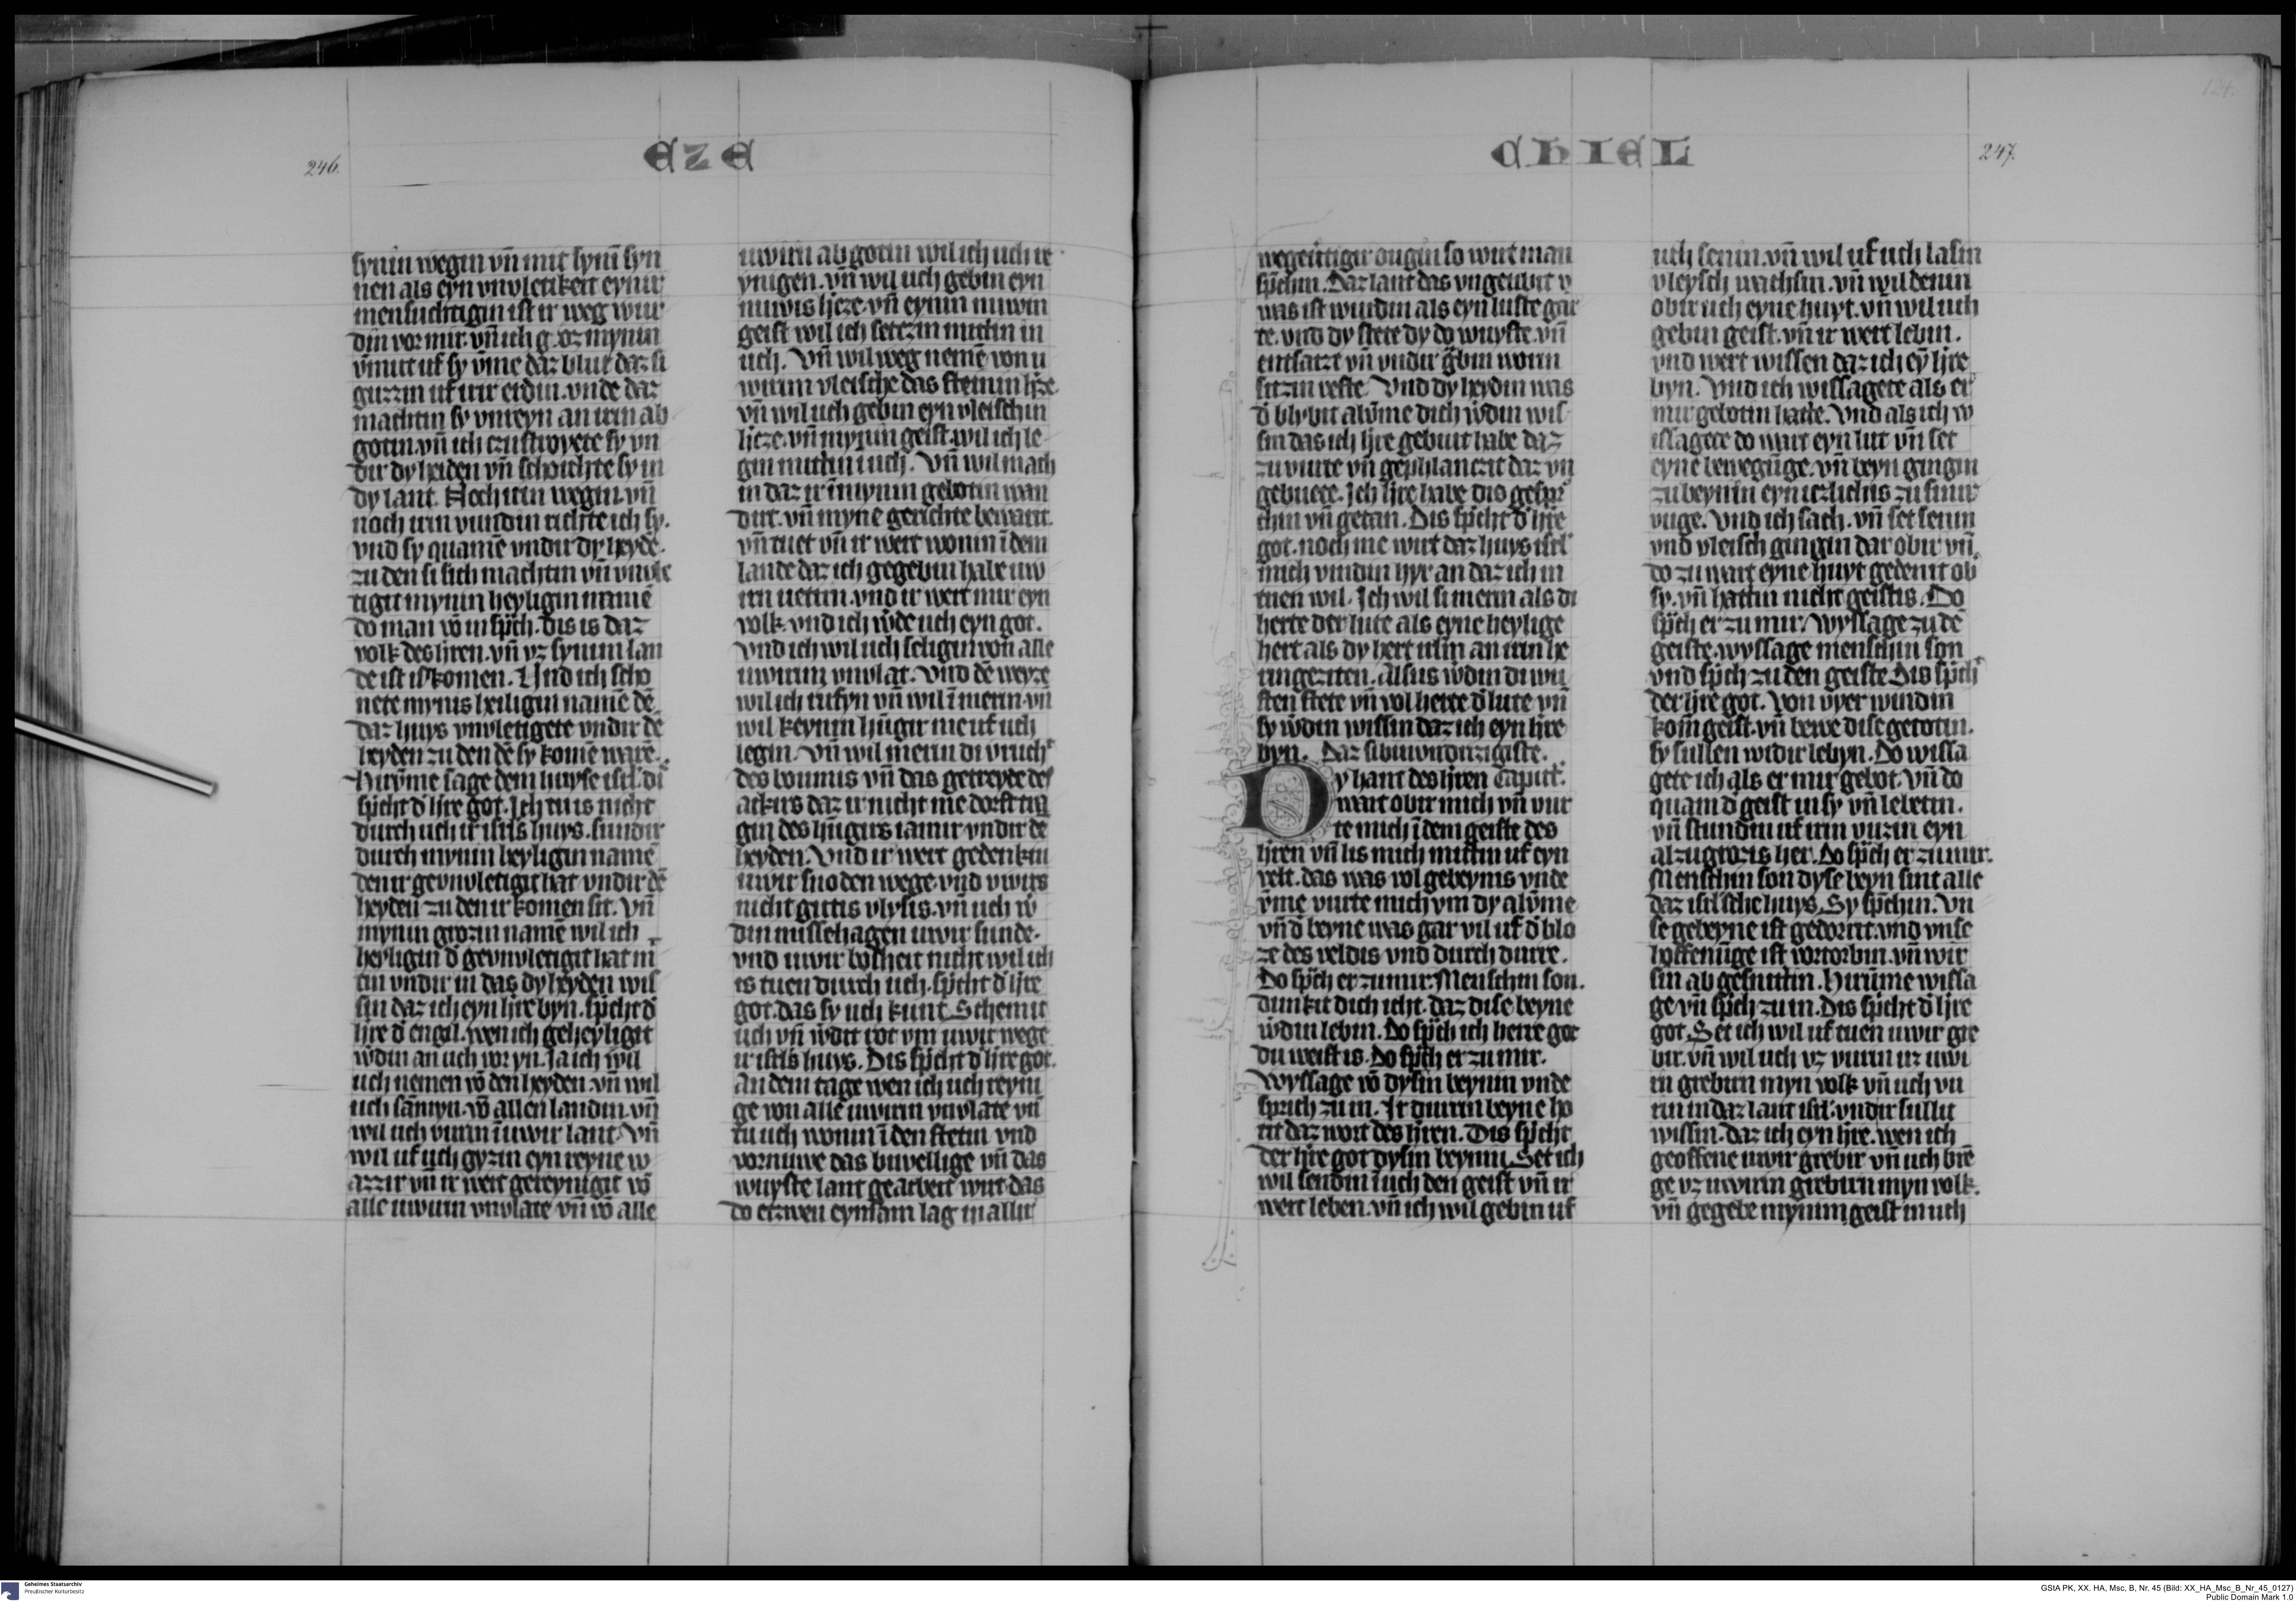 246.
EZE
synin wegin vn̄ mit synī syn
nen als eyn vnvletikeit eynir
mensuchtigin ist ir weg wur
din vor mir. vn̄ ich goz mynin
vmut uf sy v̄me daz blut daz si
guzzin uf uir erdin. vnde daz
machtin sy vnreyn an irin ab
gotin. vn̄ ich czustroyete sy vn
dir dy heiden vn̄ schichte sy in
dy lant. Noch irin wegin. vn̄
noch irin vundin richte ich sy.
vnd sy quamē vndir dy heydē.
zu den si sich machtin vn̄ vnvle
tigit mynin heyligin namē
do man vō in sp̄ch. dis is daz
volk des hren. vn̄ vz synim lan
de ist is komen. Und ich scho
nete mynis heiligin namē dē
daz huys vnvletigete vndir dē
heyden zu den dē sy komē warē.
Hirūme sage dem huyse isrl. di
sp̄cht d' hre got. Ich tuis nicht
durch uch ir isrls huys. sundir
durch mynin heyligin namē
den ir gevnvletigit hat vndir dē
heyden zu den ir komen sit. Vn̄
mynin grozin namē wil ich
heyligin d' gevnvletigit hat in
tin vndir in das dy heyden wis
sin daz ich eyn hre byn. sp̄cht d'
hre d' engil. wen ich geheyligit
w'din an uch vor yn. Ja ich wil
uch nemen vō den heyden. vn̄ wil
uch samyn. vō allen landin. vn̄
wil uch vurin ī uwir lant. Vn̄
wil uf uch gyzin eyn reyne w
azzir vn̄ ir wert gereynigit vō
alle uwirin vnvlate vn̄ vō alle
uwirin abgotin wil ich uch re
ynigen. vn̄ wil uch gebin eyn
nuwis hrze. vn̄ eynin nuwin
geist wil ich setczin mittin in
uch. Vn̄ wil weg nemē von u
wirim vleische das steinin hrze
vn̄ wil uch gebin eyn vleischin
hrze. vn̄ mynin geist wil ich le
gin mittin ī uch. Vn̄ wil mach
in daz ir ī mynin gebotin wan
dirt. vn̄ myne gerichte bewarit
vn̄ tuet vn̄ ir wert wonin ī dem
lande daz ich gegebin habe uw
irn uetirn. vnd ir wert mir eyn
volk. vnd ich w'de uch eyn got.
Vnd ich wil uch seligin von alle
uwirim vnvlat. Vnd dē weyze
wil ich rufyn vn̄ wil ī merin. vn̄
wil keynin hūgir me uf uch
legin. Vn̄ wil merin di vrucht
des boumis vn̄ das getreyde des
ackirs daz ir nicht me dorft tra
gin des hūgirs iamir vndir dē
heyden. Vnd ir wert gedenkin
uwir snoden wege. vnd vwirs
nicht gutis vlysis. vn̄ uch w'
din missehagen uwir sunde.
vnd uwir bosheit nicht wil ich
is tuen durch uch. sp̄cht d' hre
got. das sy uch kunt. Schemit
uch vn̄ w'dit rot vm uwir wege
ir isrls huys. Dis sp̄cht d' hre got.
an dem tage wen ich uch reyni
ge von alle uwirin vnvlate vn̄
tu uch wonin ī den stetin vnd
vornuwe das buvellige vn̄ das
wuyste lant gearbeit wirt. das
do etzwen eynsam lag in allir
CHIEL
247.
124.
wegeūtigir ougin so wirt man
sp̄chin. Daz lant das vngeubit v
was ist wurdin als eyn lustegar
te. vnd dy stete dy do wuyste. vn̄
entsatzt vn̄ vndir grabin worin
sitzin veste. Vnd dy heydin was
d' blybit alūme dich w'din wis
sin das ich hre gebuit habe daz
zuvurte vn̄ gephlanczit daz vn
gebuete. Ich hre habe dis gespr
chin vn̄ getan. Dis sp̄cht d' hre
got. noch me wirt daz huys isrl'
mich vindin hyr an daz ich in
tuen wil. Ich wil si merin als di
herte der lute als eyne heylige
hert als dy hert irlm an irin he
tingeziten. Alsus w'din di wu
sten stete vn̄ vol herte d' lute vn̄
sy w'din wissin daz ich eyn hre
byn. Daz sibinvndrizigiste.
Dy hant des hren Caputt'.
wart obir mich vn̄ vur
te mich ī dem geiste des
hren vn̄ lis mich mittin uf eyn
velt. das was vol gebeynis vnde
v̄me vurte mich vm dy alūme
vn̄ d' beyne was gar vil uf d' blo
ze des veldis vnd durch durre.
Do sp̄ch er zu mir. Menschin son.
dunkit dich icht. daz dise beyne
w'din lebin. Do sp̄ch ich herre got
du weist is. Do sp̄ch er zu mir.
Wyssage vō dysin beynin vnde
sprich zu in. Ir durrin beyne ho
rit daz wort des hren. Dis sp̄cht
der hre got dysin beynin. Set ich
wil sendin ī uch den geist vn̄ ir
wert leben. vn̄ ich wil gebin uf
uch senin. vn̄ wil uf uch lasin
vleysch wachsin. vn̄ wil denin
obir uch eyne huyt. vn̄ wil uch
gebin geist. vn̄ ir wert lebin.
vnd wert wissen daz ich eȳ hre
byn. Vnd ich wissagete als er
mir gebotin hatte. Vnd als ich w
issagete do wart eyn lut vn̄ set
eyne bewegūge. vn̄ beyn gingin
zu beynin eyn iczlichis zu sinir
vuge. Vnd ich sach. vn̄ set senin
vnd vleisch gingin dar obir vn̄
do zu wart eyne huyt gedenit ob
sy. vn̄ hattin nicht geistis. Do
sp̄ch er zu mir. Wyssage zu dē
geiste. wyssage menschin son
vnd sp̄ch zu den geiste Dis sp̄ch
der hre got. Von vyer windin
kom geist. vn̄ bewe dise getotin.
sy sullen widir lebyn. Do wissa
gete ich als er mir gebot. Vn̄ do
quam d' geist in sy vn̄ lebetin.
vn̄ stundin uf irin vuzin eyn
alzu grozis her. Do sp̄ch er zu mir.
Menschin son dyse beyn sint alle
daz isrl'sche huys. Sy sp̄chin. Vn
se gebeyne ist gedorrit. vnd vnse
hoffenūge ist vortorbin. vn̄ wir
sin abgesnittin. Hirūme wissa
ge vn̄ sp̄ch zu in. Dis sp̄cht d' hre
got. Set ich wil uf tuen uwir gre
bir. vn̄ wil uch vz vurin uz uwi
rn grebirn myn volk vn̄ uch vu
rin in daz lant isrl'. vndir sullit
wissin. daz ich eyn hre. wen ich
geoffene uwir grebir vn̄ uch brē
ge vz uwirin grebirn myn volk.
vn̄ gegebe mynim geist in uch
Geheimes Staatsarchiv
Preußischer Kulturbesitz
GStA PK, XX. HA, Msc, B, Nr. 45 (Bild: XX_HA_Msc_B_Nr_45_0127)
Public Domain Mark 1.0